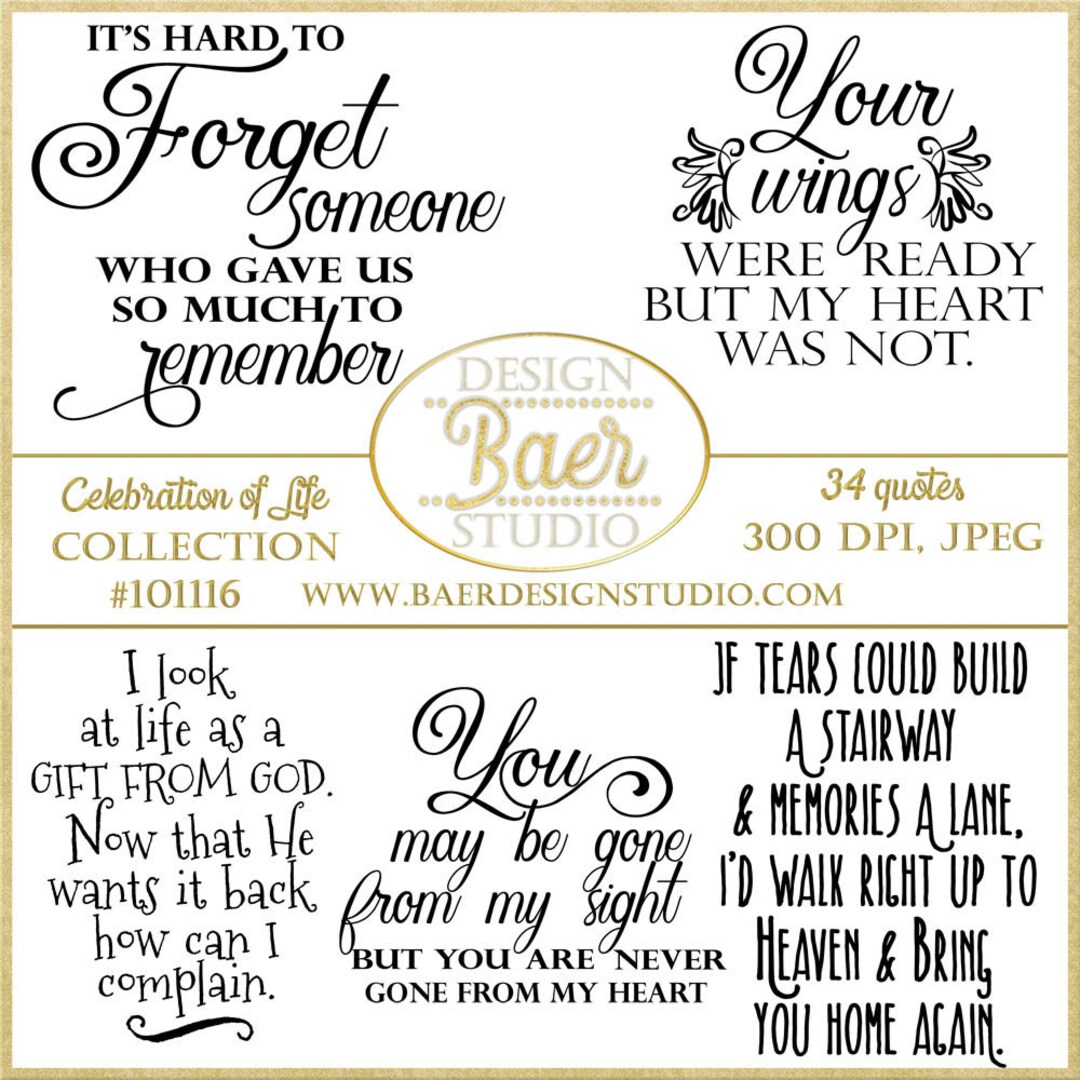 IT'S HARD TO
Forget
someone
WHO GAVE US
SO MUCH TO
remember
Your
wings
WERE READY
BUT MY HEART
WAS NOT.
DESIGN
Baer
STUDIO
Celebration of Life
COLLECTION
#101116
34 quotes
300 DPI, JPEG
WWW.BAERDESIGNSTUDIO.COM
I look
at life as a
GIFT FROM GOD.
Now that He
wants it back
how can I
complain.
You
may be gone
from my sight
BUT YOU ARE NEVER
GONE FROM MY HEART
IF TEARS COULD BUILD
A STAIRWAY
& MEMORIES A LANE,
I'D WALK RIGHT UP TO
HEAVEN & BRING
YOU HOME AGAIN.